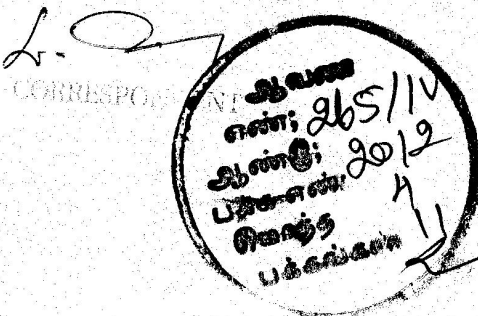 CORRESPONDENT
ஆவண
எண்; 265/IV
ஆண்டு; 2012
பக்க எண் 4
மொத்த
பக்கங்கள் 11